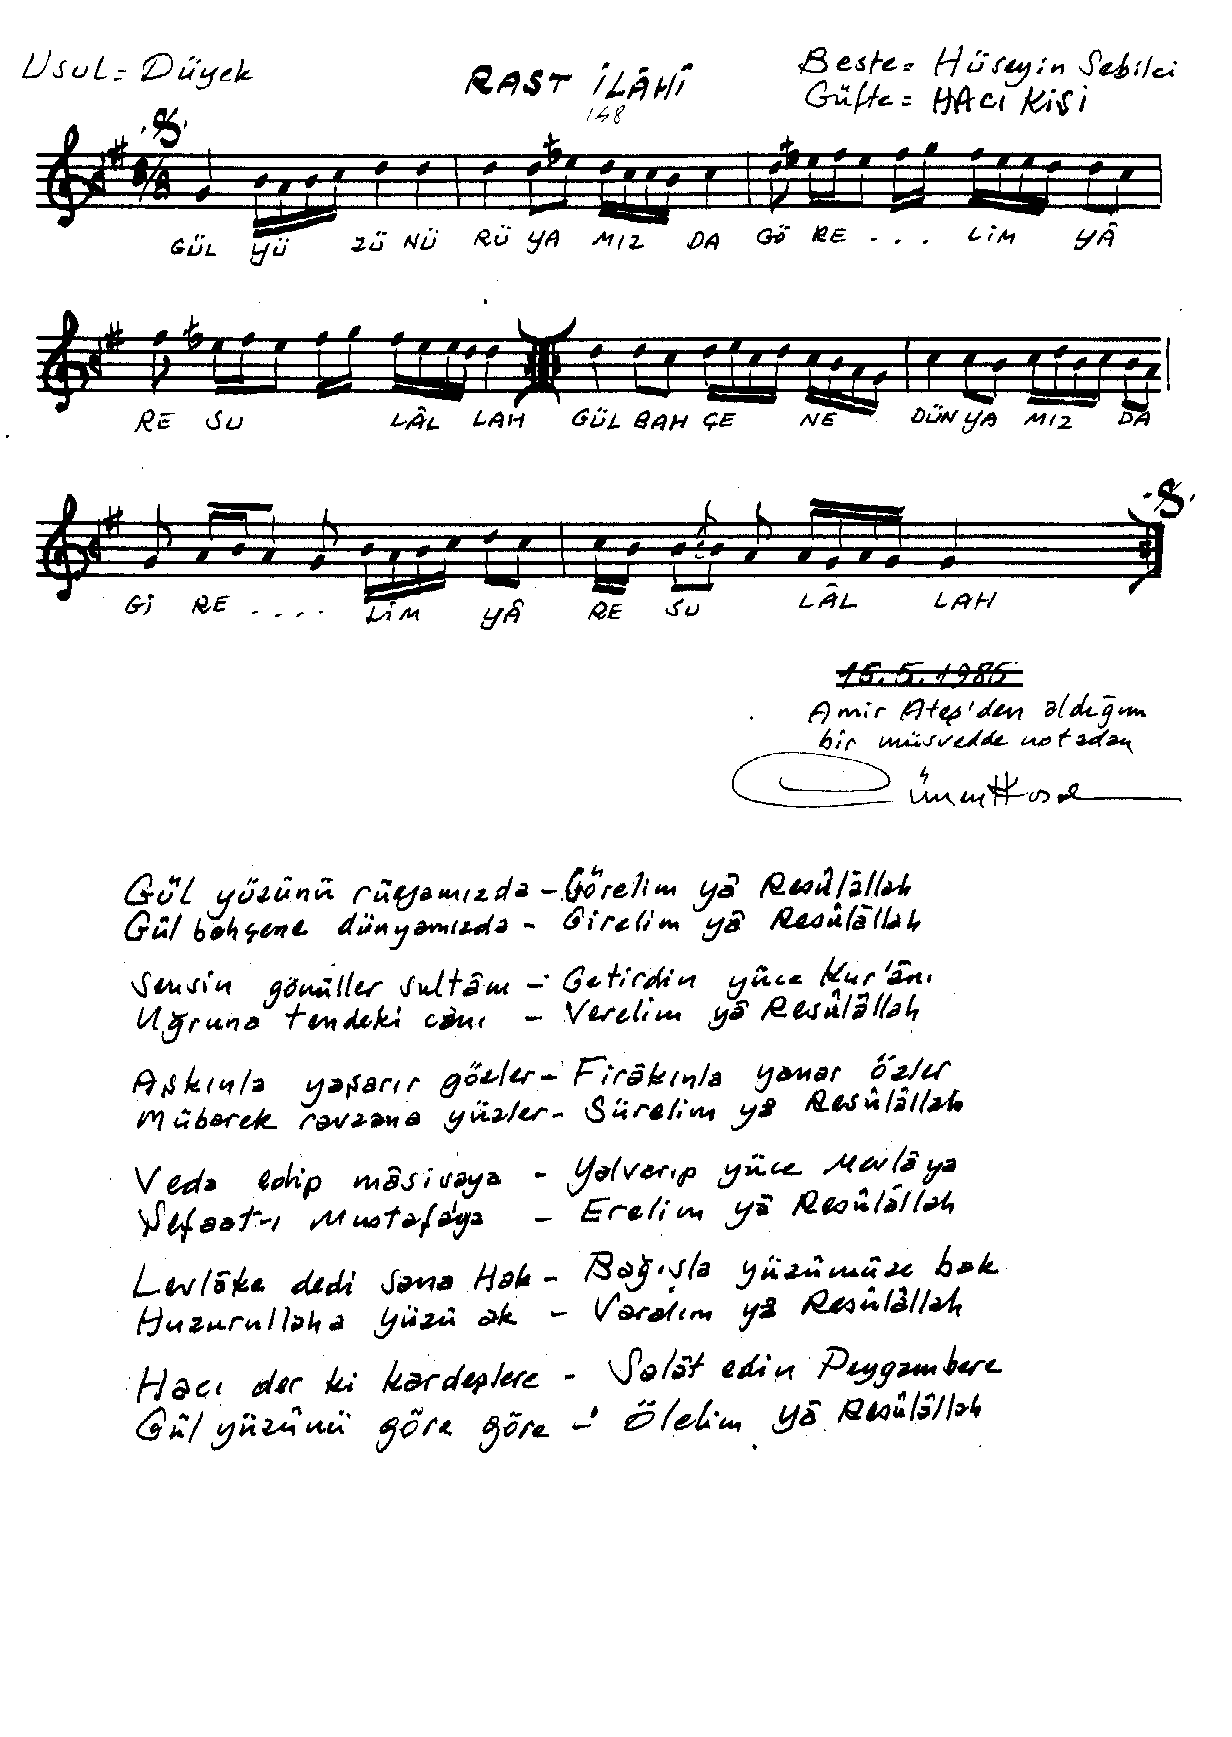 Usul = Düyek
RAST İLÂHÎ
148
Beste = Hüseyin Sebilci
Güfte = HACI KİŞİ
GÜL YÜ ZÜ NÜ RÜ YA MIZ DA GÖ RE . . . LİM YÂ
RE SU LÂL LAH GÜL BAH ÇE NE DÜN YA MIZ DA
Gİ RE . . . . LİM YÂ RE SU LÂL LAH
15.5.1985
Amir Ateş'den aldığım
bir müsvedde notadan
Gül yüzünü rüyamızda - Görelim yâ Resûlâllah
Gül bahçene dünyamızda - Girelim yâ Resûlâllah
Sensin gönüller sultânı - Getirdin yüce Kur'ânı
Uğruna tendeki cânı - Verelim yâ Resûlâllah
Aşkınla yaşarır gözler - Firâkınla yanar özler
Mübarek ravzana yüzler - Sürelim yâ Resûlâllah
Veda edip mâsivaya - Yalvarıp yüce Mevlâya
Şefaat-ı Mustafa'ya - Erelim yâ Resûlâllah
Levlâke dedi sana Hak - Bağışla yüzümüze bak
Huzurullaha yüzü ak - Varalım yâ Resûlâllah
Hacı der ki kardeşlere - Salât edin Peygambere
Gül yüzünü göre göre - Ölelim yâ Resûlâllah